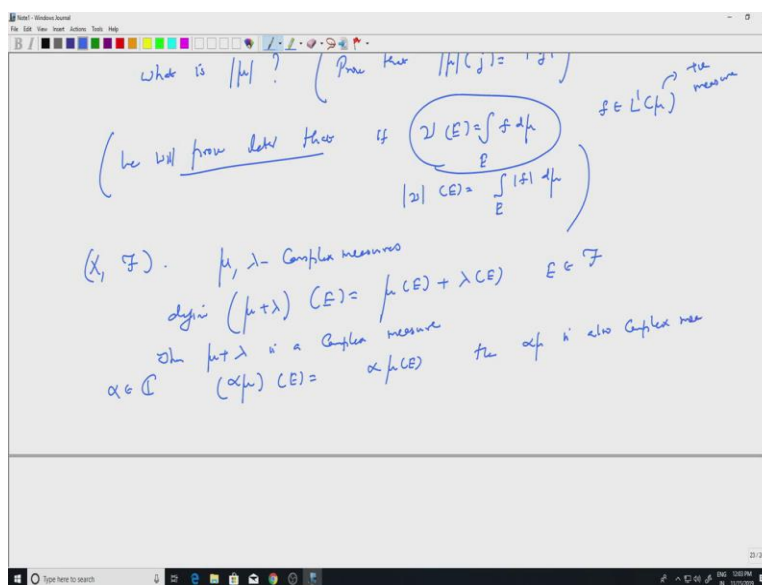 Note1 - Windows Journal
File Edit View Insert Actions Tools Help
what is |μ| ? ( Prove that |μ|( j ) =
f ∈ L¹(μ) → +ve measure
( we will prove later that if ν(E) = ∫_E f dμ
|ν| (E) = ∫_E |f| dμ )
(X, F). μ, λ - Complex measures
define (μ+λ) (E) = μ(E) + λ(E) E ∈ F
Then μ+λ is a Complex measure
α ∈ ℂ (αμ) (E) = α μ(E) the αμ is also Complex mea
23/2
Type here to search
ENG 12:03 PM
IN 11/11/2019